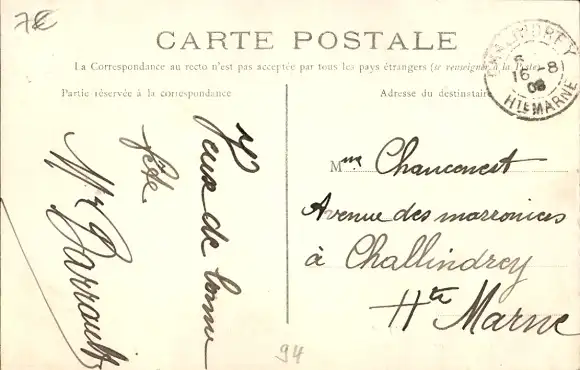 7€
CARTE POSTALE
La Correspondance au recto n'est pas acceptée par tous les pays étrangers (se renseigner à la Poste)
Partie réservée à la correspondance
Adresse du destinataire
CHALINDREY
16 -8
08
HTE MARNE
Vœux de bonne
fête
M Barrault
Mme Chanconest
Avenue des marroniers
à Challindrey
Hte Marne
94